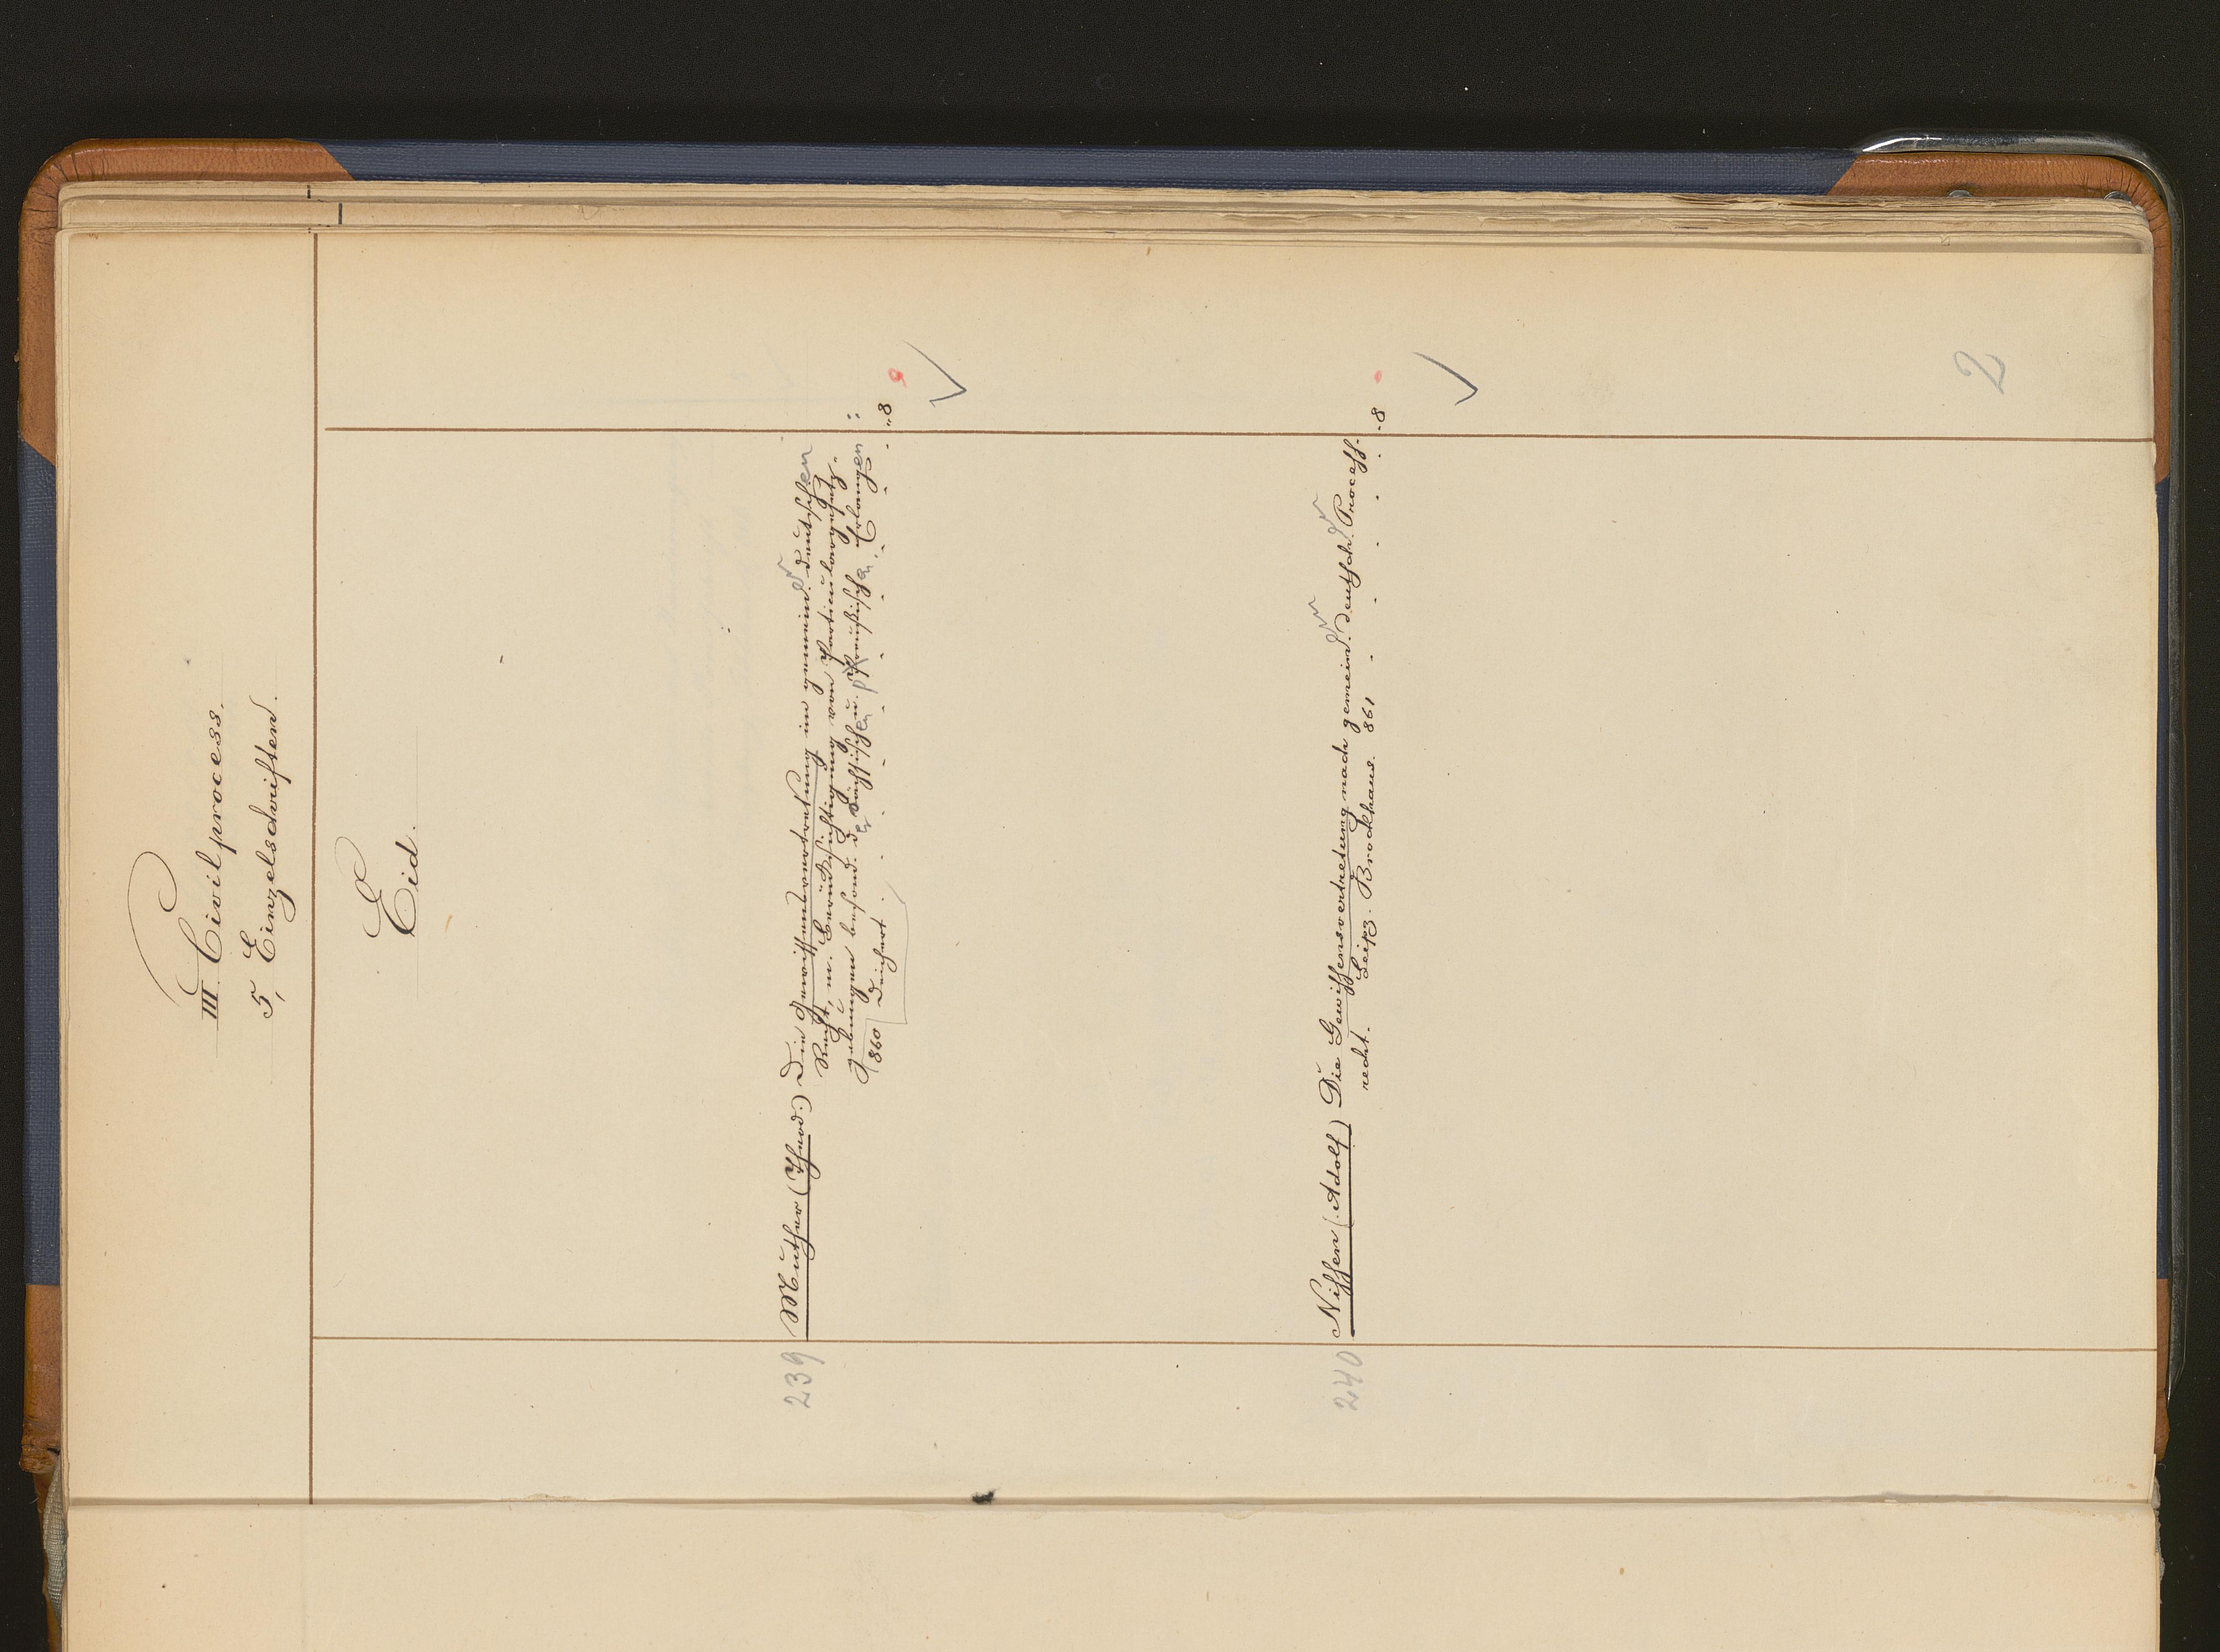 III. Civilprocess.
5, Einzelschriften.
Eid.
239 Muther (Theod.) Die Gewissensvertretung im gemein. deutschen
Recht, m. Berücksichtigung von Particulargesetz-
gebungen besond. der Sächsischen u. preußischen. Erlangen
860 Deichert. 8
240 Nissen (Adolf) Die Gewissensvertretung nach gemeinem deutsch. Proceß-
recht. Leipz. Brockhaus. 861 8
2